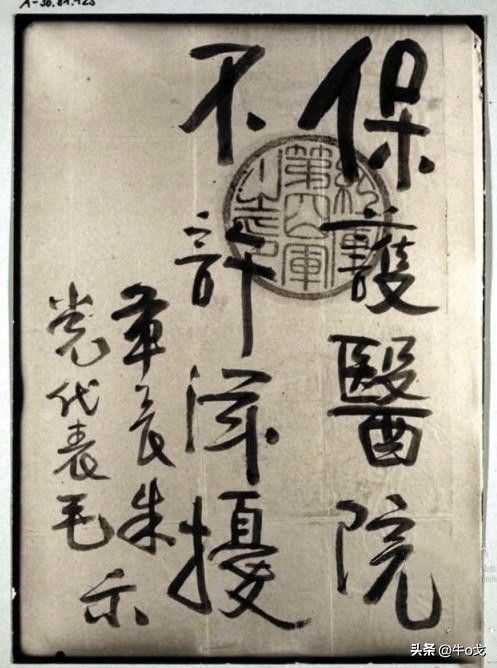 A-30.81.123
保護醫院
不許滋擾
軍長朱
党代表毛
示
第四軍
头条 @牛o戈